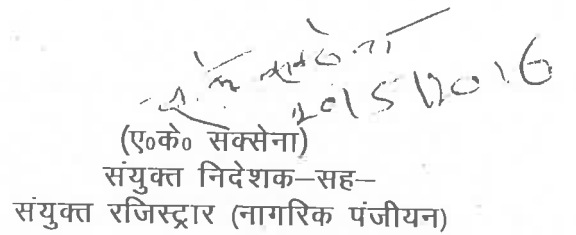 ए० के सक्सेना
20/5/2016
(ए०के० सक्सेना)
संयुक्त निदेशक–सह–
संयुक्त रजिस्ट्रार (नागरिक पंजीयन)